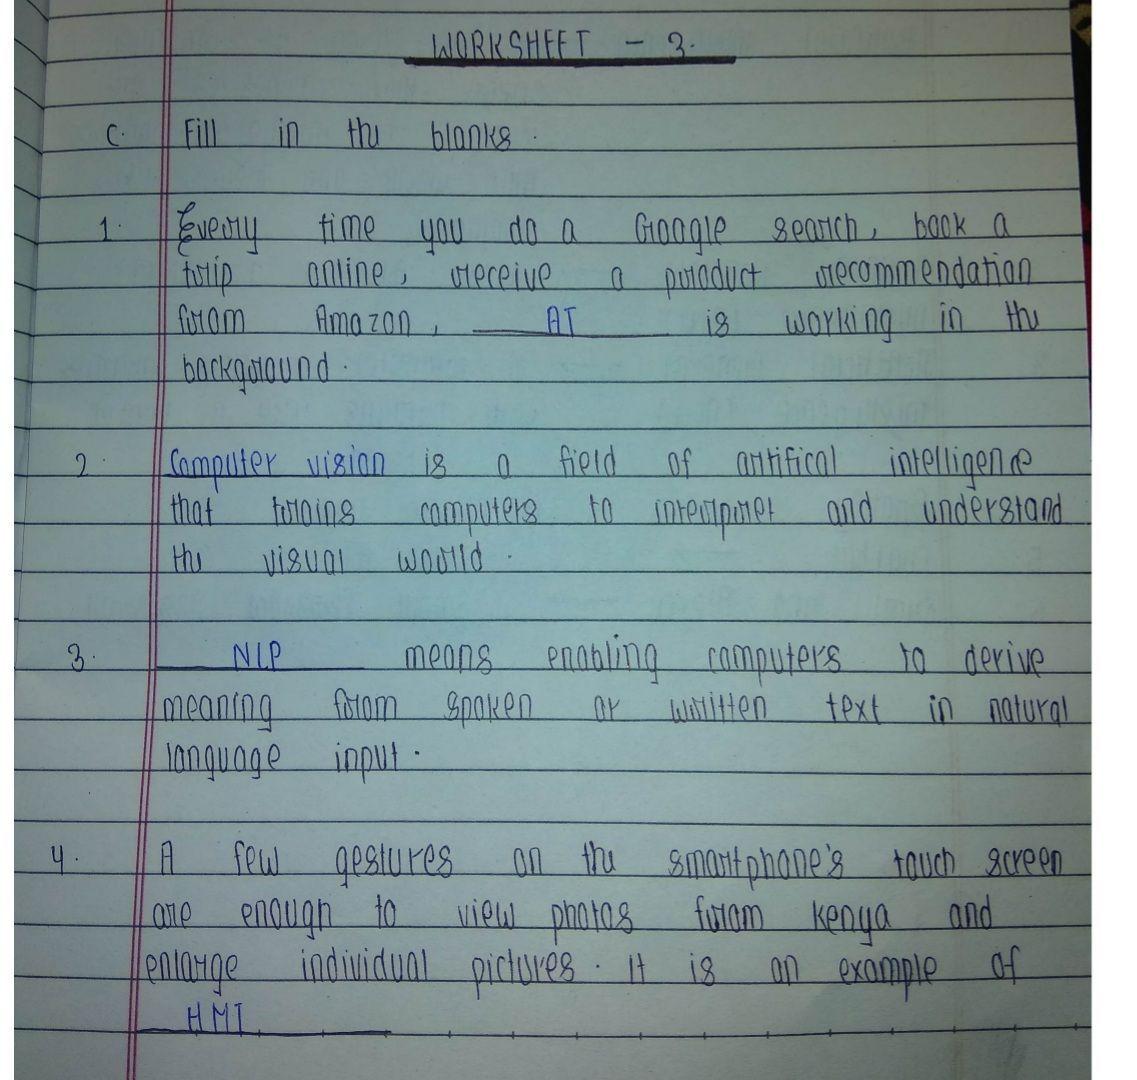 WORKSHEET - 3.
C. Fill in the blanks.
1. Every time you do a Google search, book a
trip online, receive a product recommendation
from Amazon, AI is working in the
background.
2. Computer vision is a field of artifical intelligence
that trains computers to interpret and understand
the visual world.
3. NLP means enabling computers to derive
meaning from spoken or written text in natural
language input.
4. A few gestures on the smartphone's touch screen
are enough to view photos from Kenya and
enlarge individual pictures. It is an example of
HMI